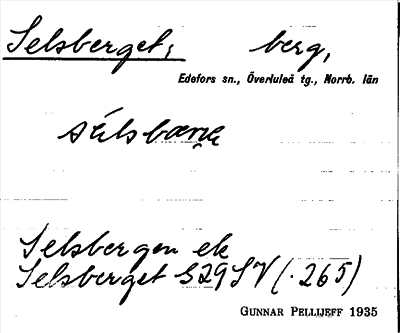 Selsberget, berg,
Edefors sn., Överluleå tg., Norrb. län
Selsbergen ek
Selsberget S29SV (.265)
GUNNAR PELLIJEFF 1935